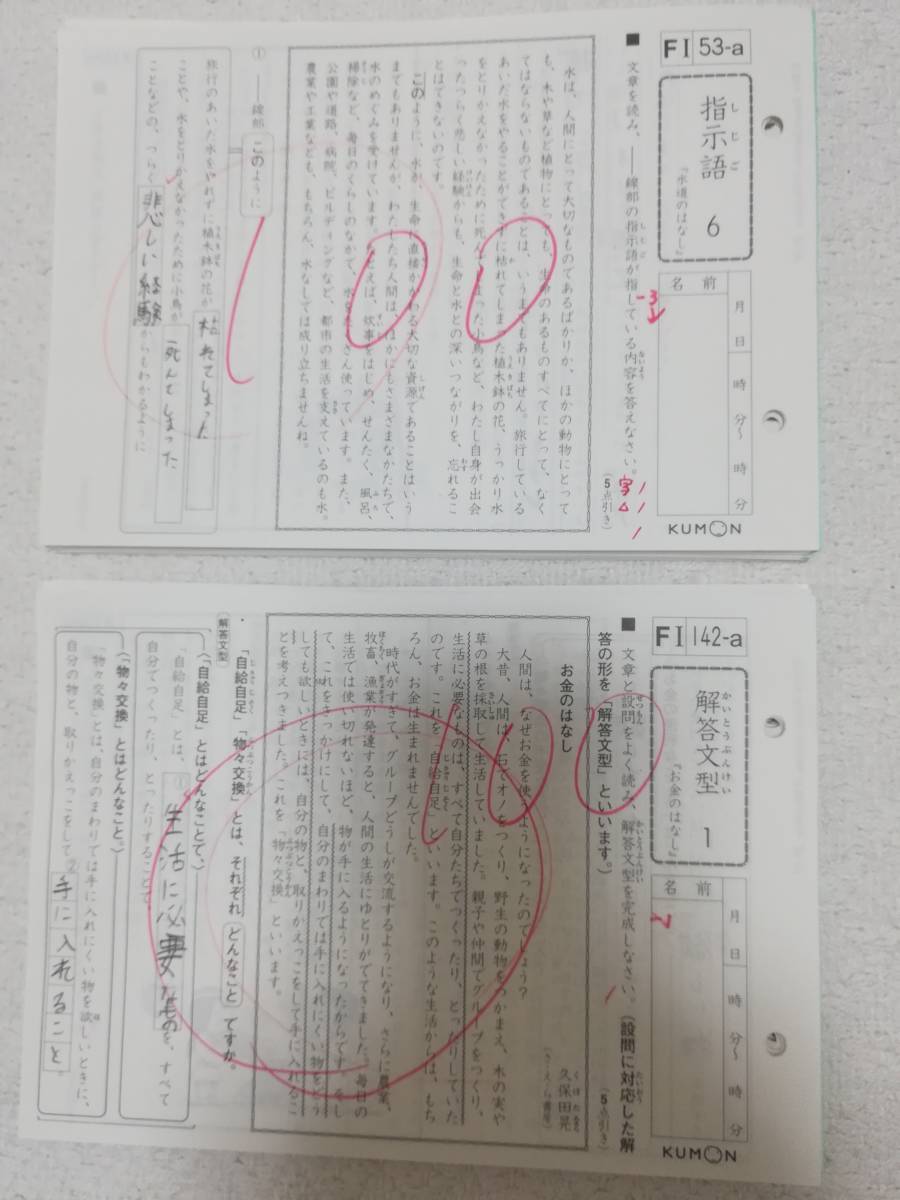 FI 53-a
指示語 6
しじご
『水道のはなし』
名前
月
日
時
分〜
時
分
KUMON
■ 文章を読み、――線部の指示語が指している内容を答えなさい。
(5点引き)
水は、人間にとって大切なものであるばかりか、ほかの動物にとって
も、木や草など植物にとっても、生命のあるものすべてにとって、なく
てはならないものであることは、いうまでもありません。旅行している
あいだ水をやることができずに枯れてしまった植木鉢の花、うっかり水
をとりかえなかったために死んでしまった小鳥など、わたし自身が出会
ったつらく悲しい経験からも、生命と水との深いつながりを、忘れるこ
とはできないのです。
このように、水が、生命に直接かかわる大切な資源であることはいう
までもありませんが、わたしたち人間は、ほかにもさまざまなかたちで、
水のめぐみを受けています。たとえば、炊事をはじめ、せんたく、風呂、
掃除など、毎日のくらしのなかで、水をたくさん使っています。また、
公園や道路、病院、ビルディングなど、都市の生活を支えているのも水。
農業や工業なども、もちろん、水なしでは成り立ちませんね。
① ――線部 このように
旅行のあいだ水をやれずに植木鉢の花が 枯れてしまった
ことや、水をとりかえなかったために小鳥が 死んでしまった
ことなどの、つらく 悲しい経験 からもわかるように
100
-3
字
FI 142-a
解答文型 1
かいとうぶんけい
『お金のはなし』
名前
月
日
時
分〜
時
分
KUMON
■ 文章と設問をよく読み、解答文型を完成しなさい。(設問に対応した解
答の形を「解答文型」といいます。)
(5点引き)
お金のはなし
久保田晃
くぼたあきら
(さ・え・ら書房)
人間は、なぜお金を使うようになったのでしょう?
大昔、人間は、石でオノをつくり、野生の動物をつかまえ、木の実や
草の根を採取して生活していました。親子や仲間でグループをつくり、
生活に必要なものは、すべて自分たちでつくったり、とったりしていた
のです。これを「自給自足」といいます。このような生活からは、もち
ろん、お金は生まれませんでした。
時代がすぎて、グループどうしが交流するようになり、さらに農業、
牧畜、漁業が発達すると、人間の生活にゆとりがでてきました。毎日の
生活では使い切れないほど、物が手に入るようになったからです。そし
て、これをきっかけにして、自分のまわりでは手に入れにくい物をどう
しても欲しいときには、自分の物と、取りかえっこをして手に入れるこ
とを考えつきました。これを「物々交換」といいます。
・「自給自足」「物々交換」とは、それぞれ どんなこと ですか。
解答文型
〈「自給自足」とはどんなことで、〉
「自給自足」とは、① 生活に必要なもの を、すべて
自分でつくったり、とったりすることで、
〈「物々交換」とはどんなこと。〉
「物々交換」とは、自分のまわりでは手に入れにくい物を欲しいときに、
自分の物と、取りかえっこをして ② 手に入れること。
100